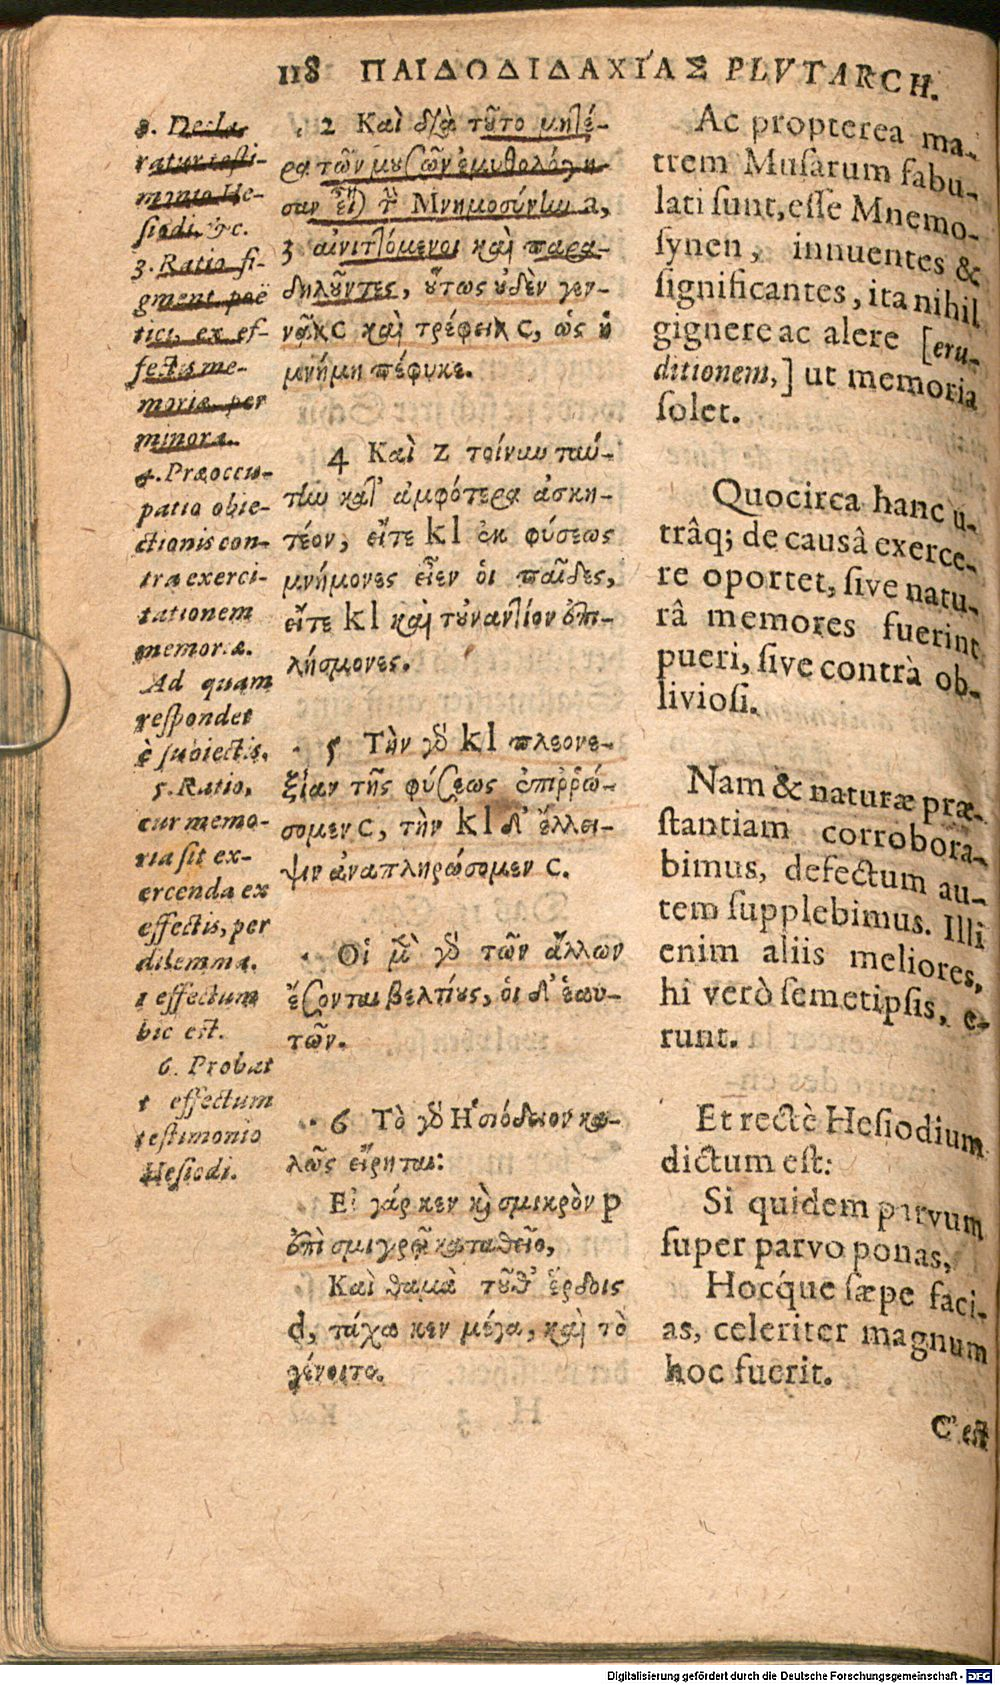 118 ΠΑΙΔΟΔΙΔΑΧΙΑΣ PLVTARCH.
2. Decla-
ratur testi-
monio He-
siodi, &c.
3. Ratio fi-
gment. poë
tici, ex ef-
fectis me-
moriæ, per
minora.
4. Præoccu-
patio obie-
ctionis con-
tra exerci-
tationem
memoriæ.
Ad quam
respondet
è subiectis.
5. Ratio,
cur memo-
ria sit ex-
ercenda ex
effectis, per
dilemma.
1 effectum
hic est.
6. Probat
1 effectum
testimonio
Hesiodi.
2 Καὶ διὰ τοῦτο μητέ-
ρα τῶν μουσῶν ἐμυθολόγη-
σαν εἶναι τὴν Μνημοσύνην a,
3 αἰνιττόμενοι καὶ παρα-
δηλοῦντες, οὕτως οὐδὲν γεν-
νᾷν c καὶ τρέφειν c, ὡς ἡ
μνήμη πέφυκε.
4 Καὶ z τοίνυν ταύ-
την κατ' ἀμφότερα ἀσκη-
τέον, εἴτε kl ἐκ φύσεως
μνήμονες εἶεν οἱ παῖδες,
εἴτε kl καὶ τοὐναντίον ἐπι-
λήσμονες.
5 Τὴν γὰρ kl πλεονε-
ξίαν τῆς φύσεως ἐπιῤῥώ-
σομεν c, τὴν kl δ' ἔλλει-
ψιν ἀναπληρώσομεν c.
Οἱ μὲν γὰρ τῶν ἄλλων
ἔσονται βελτίους, οἱ δ' ἑαυ-
τῶν.
6 Τὸ γὰρ Ἡσιόδειον κα-
λῶς εἴρηται:
Εἰ γάρ κεν καὶ σμικρὸν p
ἐπὶ σμικρῷ καταθεῖο,
Καὶ θαμὰ τοῦθ' ἔρδοις
d, τάχα κεν μέγα, καὶ τὸ
γένοιτο.
Ac propterea ma-
trem Musarum fabu-
lati sunt, esse Mnemo-
synen, innuentes &
significantes, ita nihil
gignere ac alere [eru-
ditionem,] ut memoria
solet.
Quocirca hanc u-
trâq; de causâ exerce-
re oportet, sive natu-
râ memores fuerint
pueri, sive contrà ob-
liviosi.
Nam & naturæ præ-
stantiam corrobora-
bimus, defectum au-
tem supplebimus. Illi
enim aliis meliores,
hi verò semetipsis, e-
runt.
Et rectè Hesiodium
dictum est:
Si quidem parvum
super parvo ponas,
Hocq́ue sæpe faci-
as, celeriter magnum
hoc fuerit.
C'est
Digitalisierung gefördert durch die Deutsche Forschungsgemeinschaft - DFG